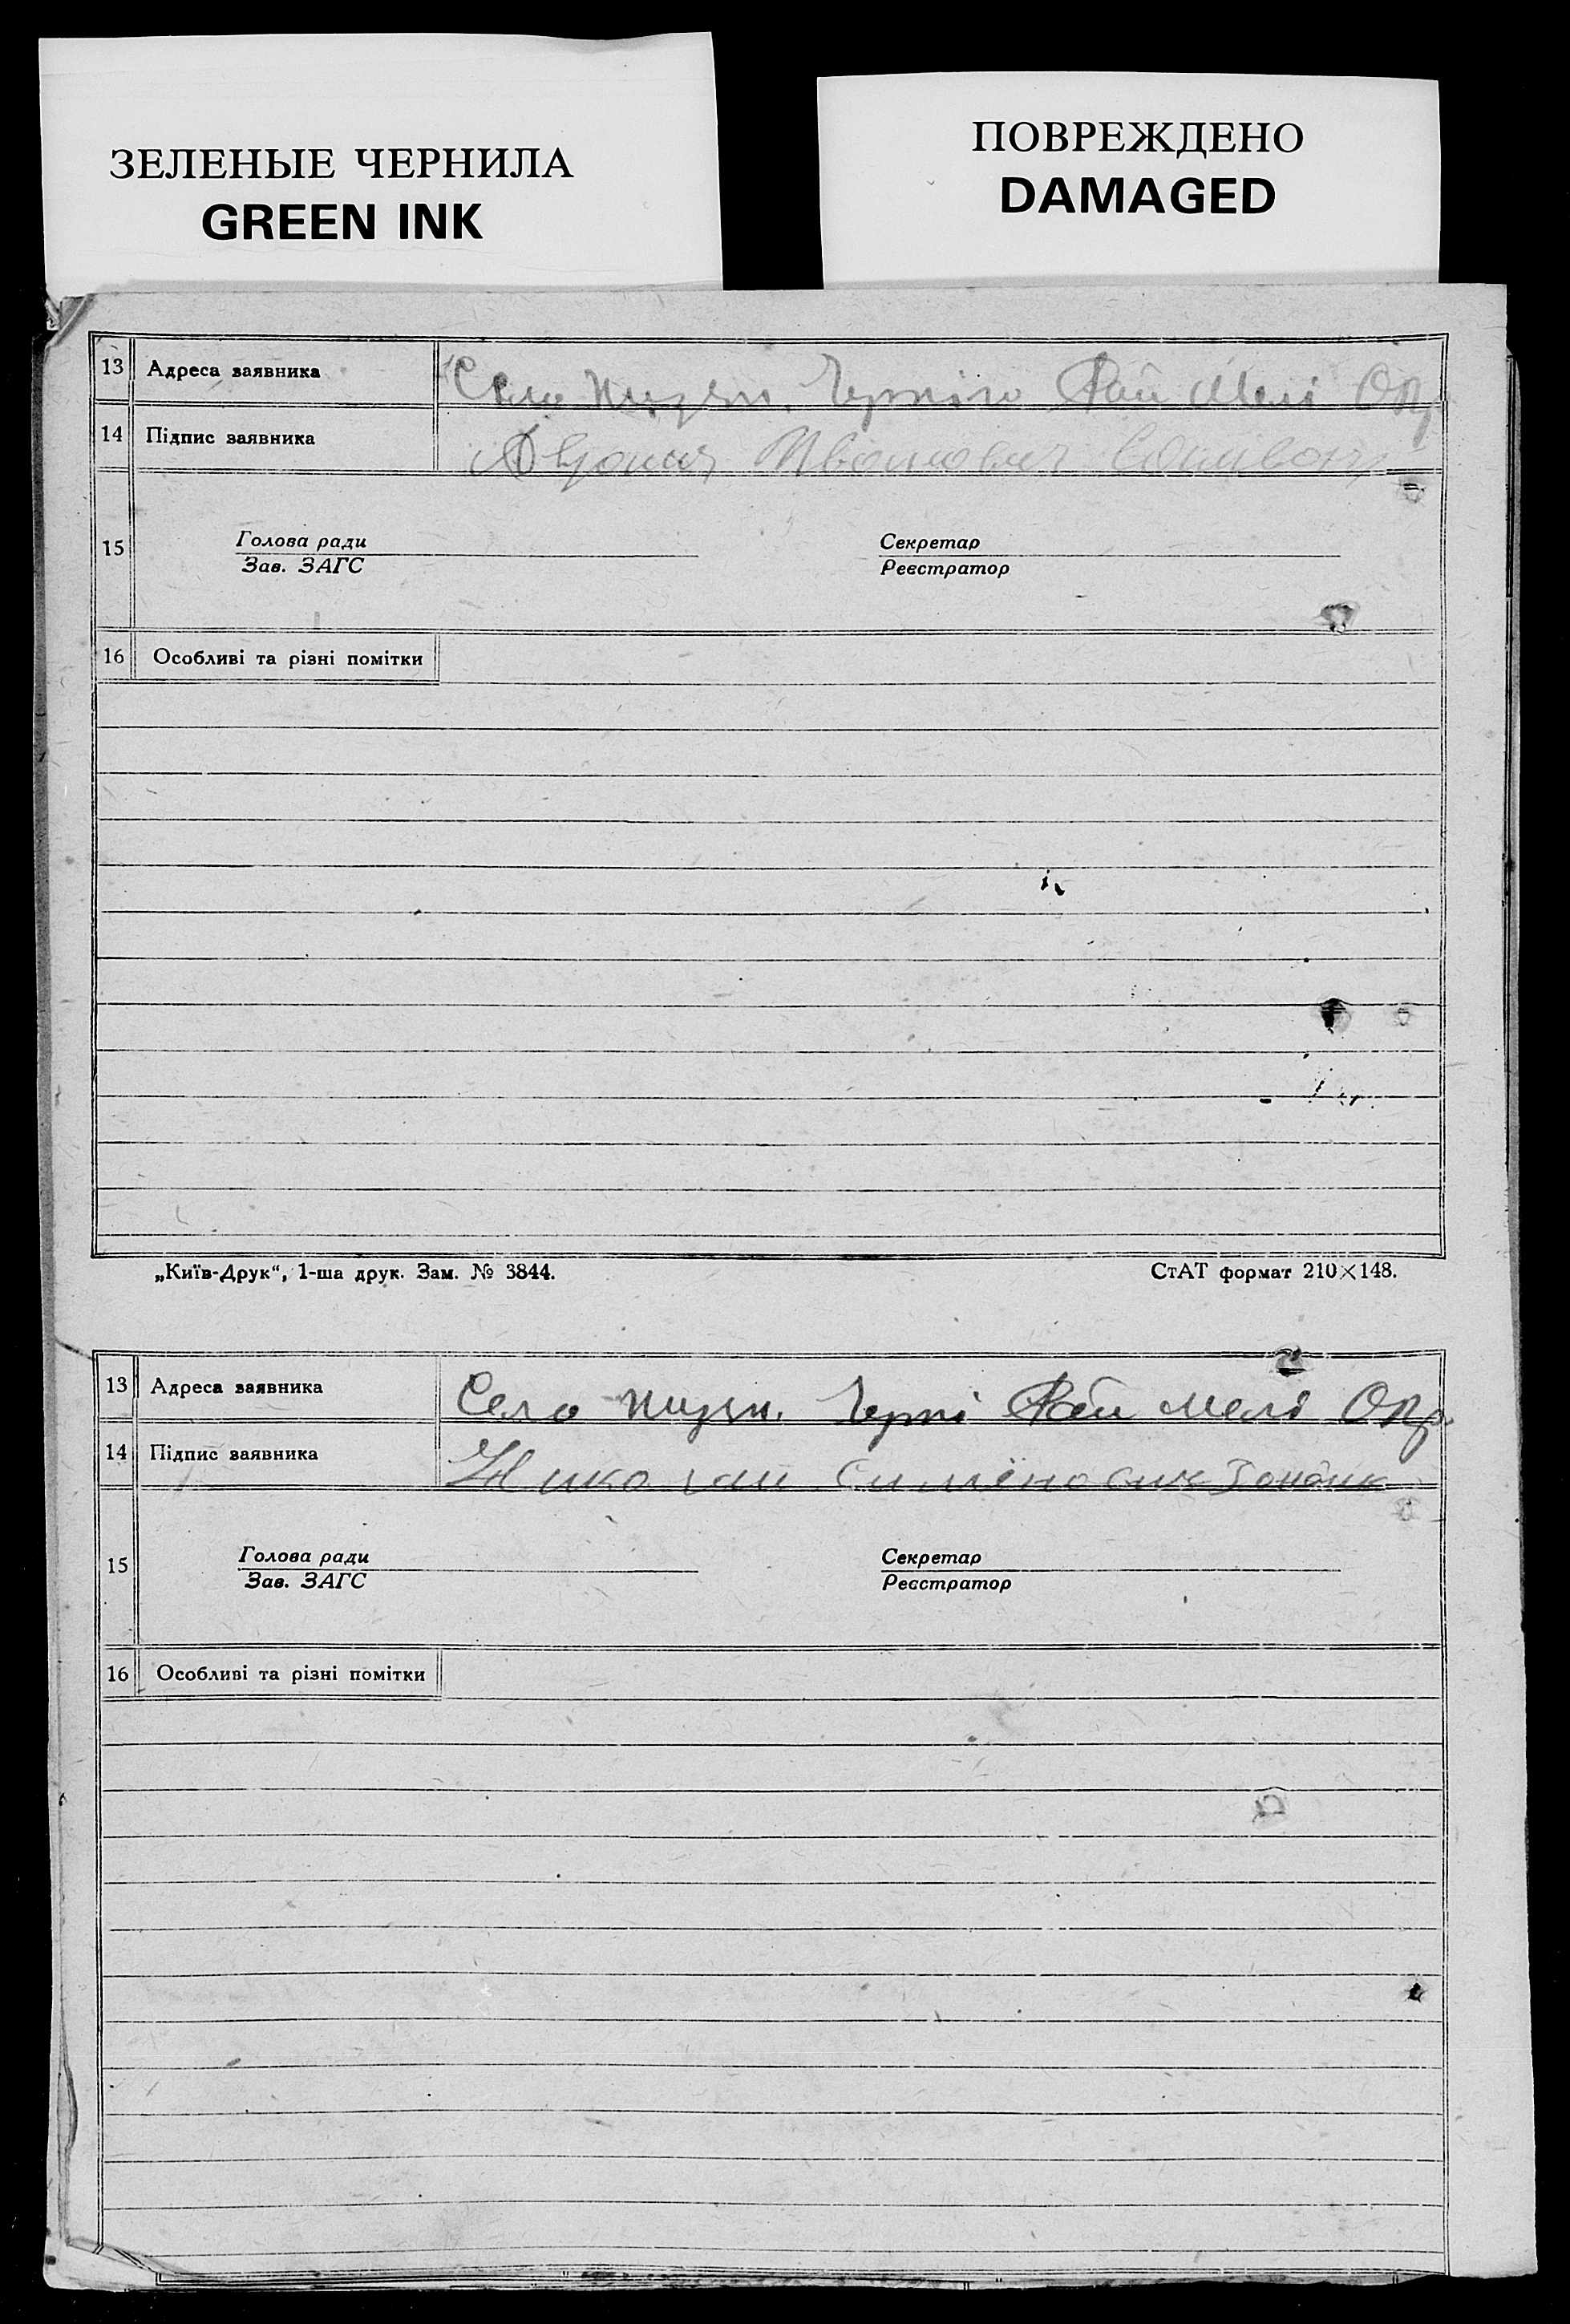 ЗЕЛЕНЫЕ ЧЕРНИЛА
GREEN INK
ПОВРЕЖДЕНО
DAMAGED
13 Адреса заявника Село Рай Мелі Окр
14 Підпис заявника Иванович
15 Голова ради Секретар
Зав. ЗАГС Реєстратор
16 Особливі та різні помітки
„Київ-Друк“, 1-ша друк. Зам. № 3844. СтАТ формат 210×148.
13 Адреса заявника Село Рай Мелі Окр.
14 Підпис заявника Николаи
15 Голова ради Секретар
Зав. ЗАГС Реєстратор
16 Особливі та різні помітки